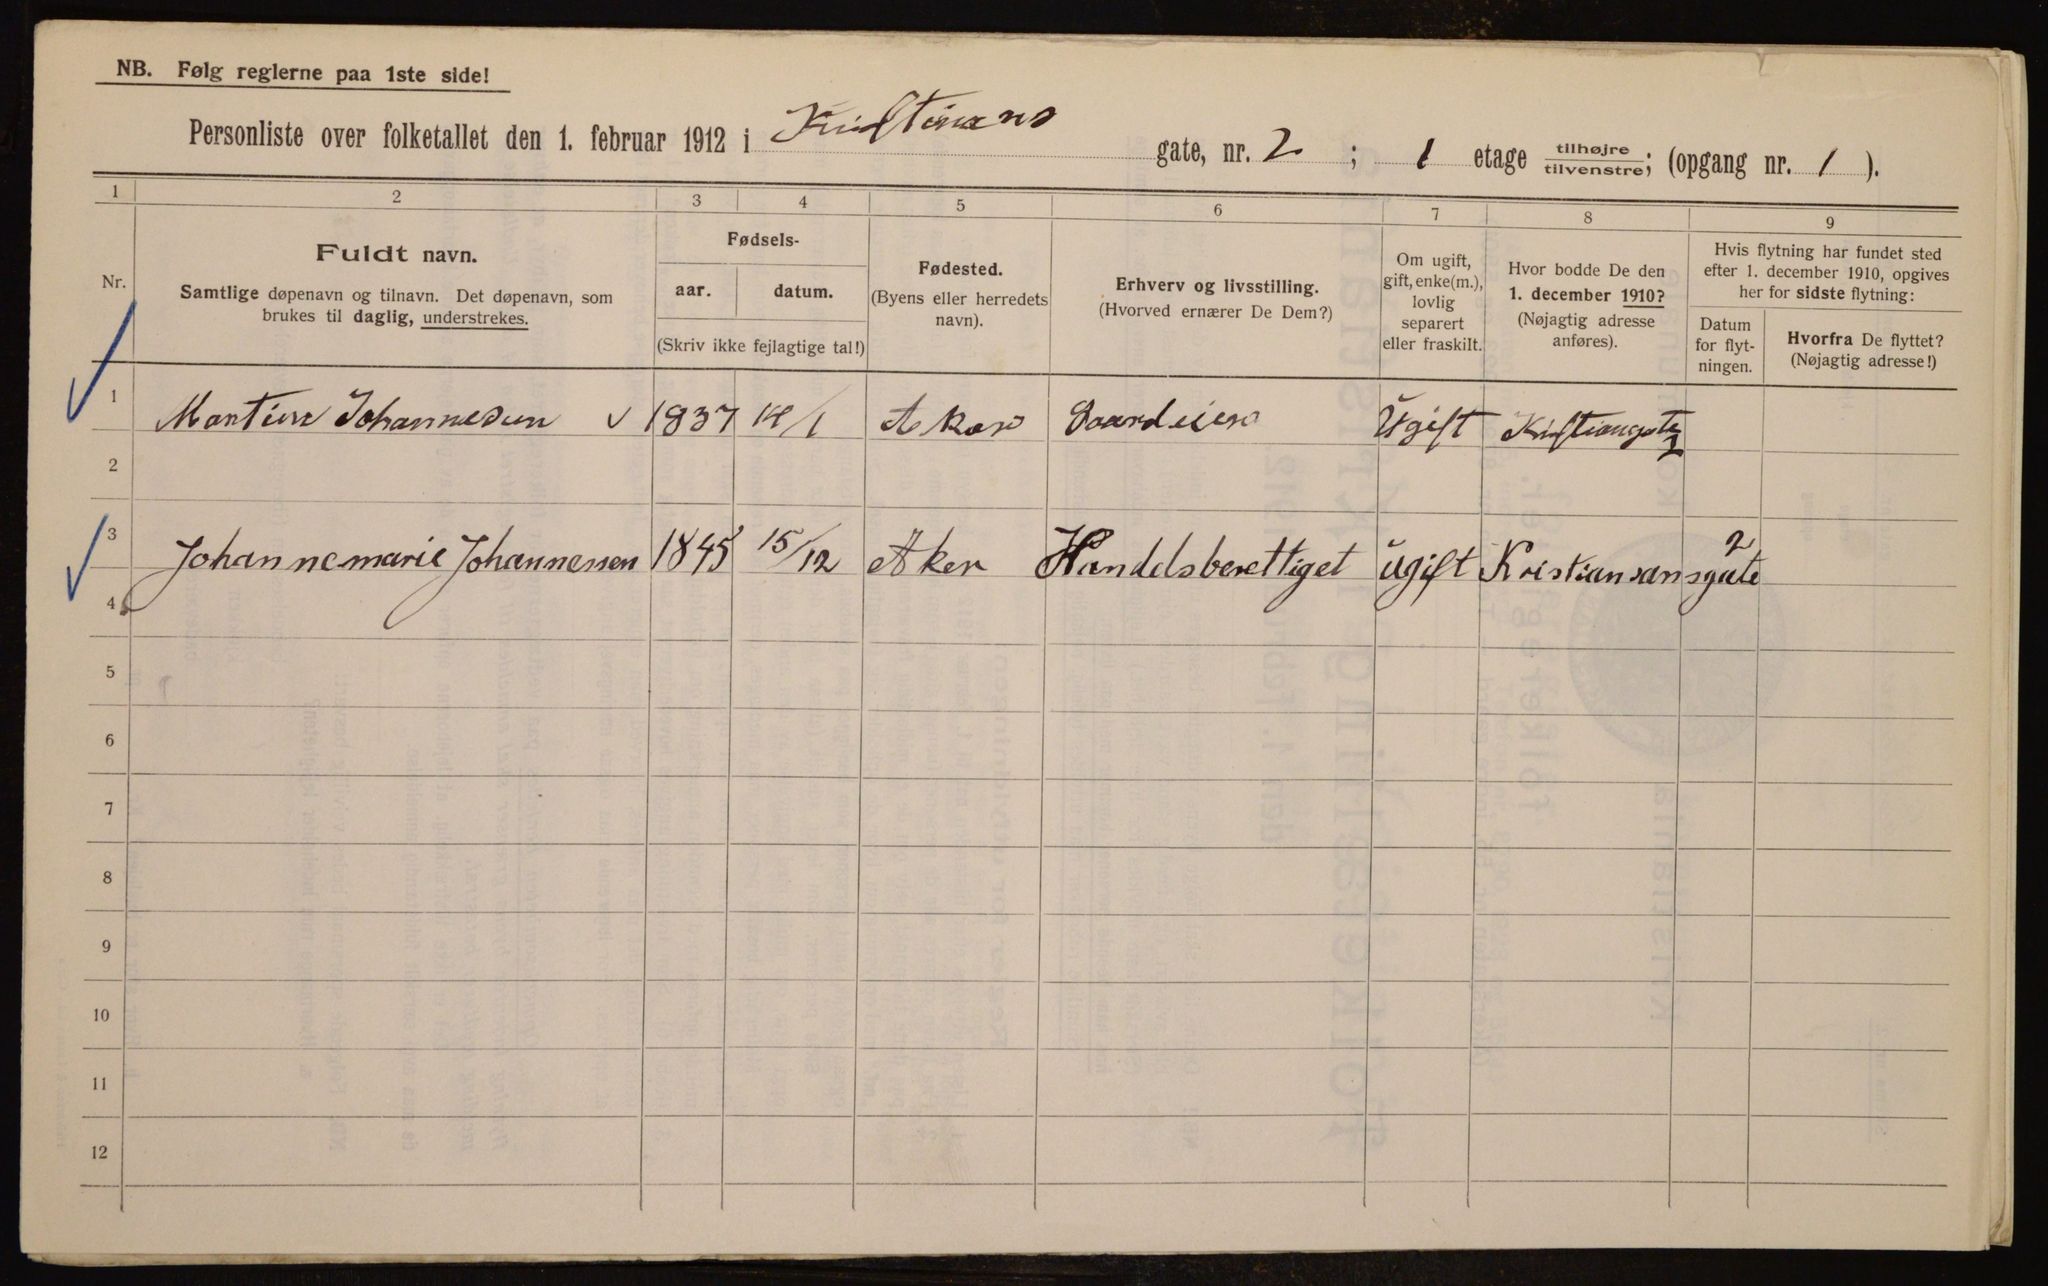 NB. Følg reglerne paa 1ste side!
Personliste over folketallet den 1. februar 1912 i Kristians gate, nr. 2 ; 1 etage tilhøjre tilvenstre; (opgang nr. 1 ).
1 2 3 4 5 6 7 8 9
Nr.
Fuldt navn.
Samtlige døpenavn og tilnavn. Det døpenavn, som
brukes til daglig, understrekes.
Fødsels-
aar. datum.
(Skriv ikke fejlagtige tal!)
Fødested.
(Byens eller herredets
navn).
Erhverv og livsstilling.
(Hvorved ernærer De Dem?)
Om ugift,
gift, enke(m.),
lovlig
separert
eller fraskilt.
Hvor bodde De den
1. december 1910?
(Nøjagtig adresse
anføres).
Hvis flytning har fundet sted
efter 1. december 1910, opgives
her for sidste flytning:
Datum
for flyt-
ningen.
Hvorfra De flyttet?
(Nøjagtig adresse!)
1 Johannesen 1837 Aker Gaardeier Ugift Kristiansgate 2
2
3 Johannemarie Johannessen 1845 15/12 Aker Handelsberettiget ugift Kristiansansgate 2
4
5
6
7
8
9
10
11
12